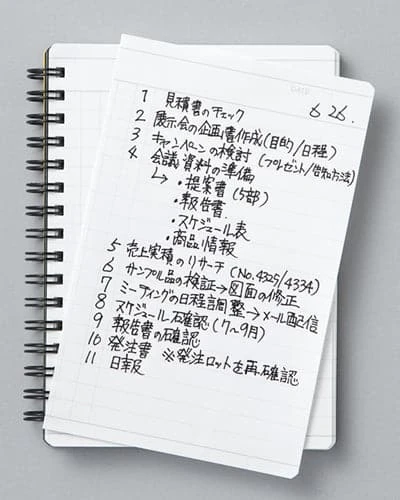 DATE
6 26.
1 見積書のチェック
2 展示会の企画書作成(目的/日程)
3 キャンペーンの検討(プレゼント/告知方法)
4 会議資料の準備
↳ ・提案書(5部)
・報告書
・スケジュール表
・商品情報
5 売上実積のリサーチ(No.4325/4334)
6 サンプル品の検証→図面の修正
7 ミーティングの日程調整→メール配信
8 スケジュール確認(7〜9月)
9 報告書の確認
10 発注書 ※発注ロットを再確認
11 日報